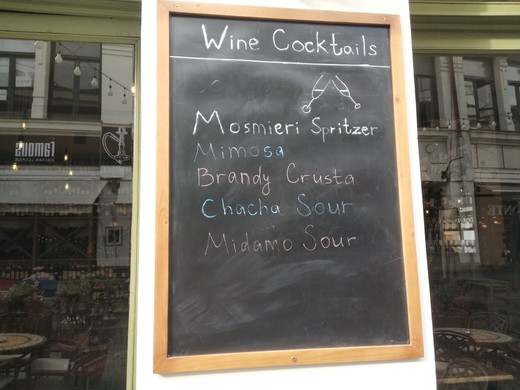 Wine Cocktails
Mosmieri Spritzer
Mimosa
Brandy Crusta
Chacha Sour
Midamo Sour
FAMOUS